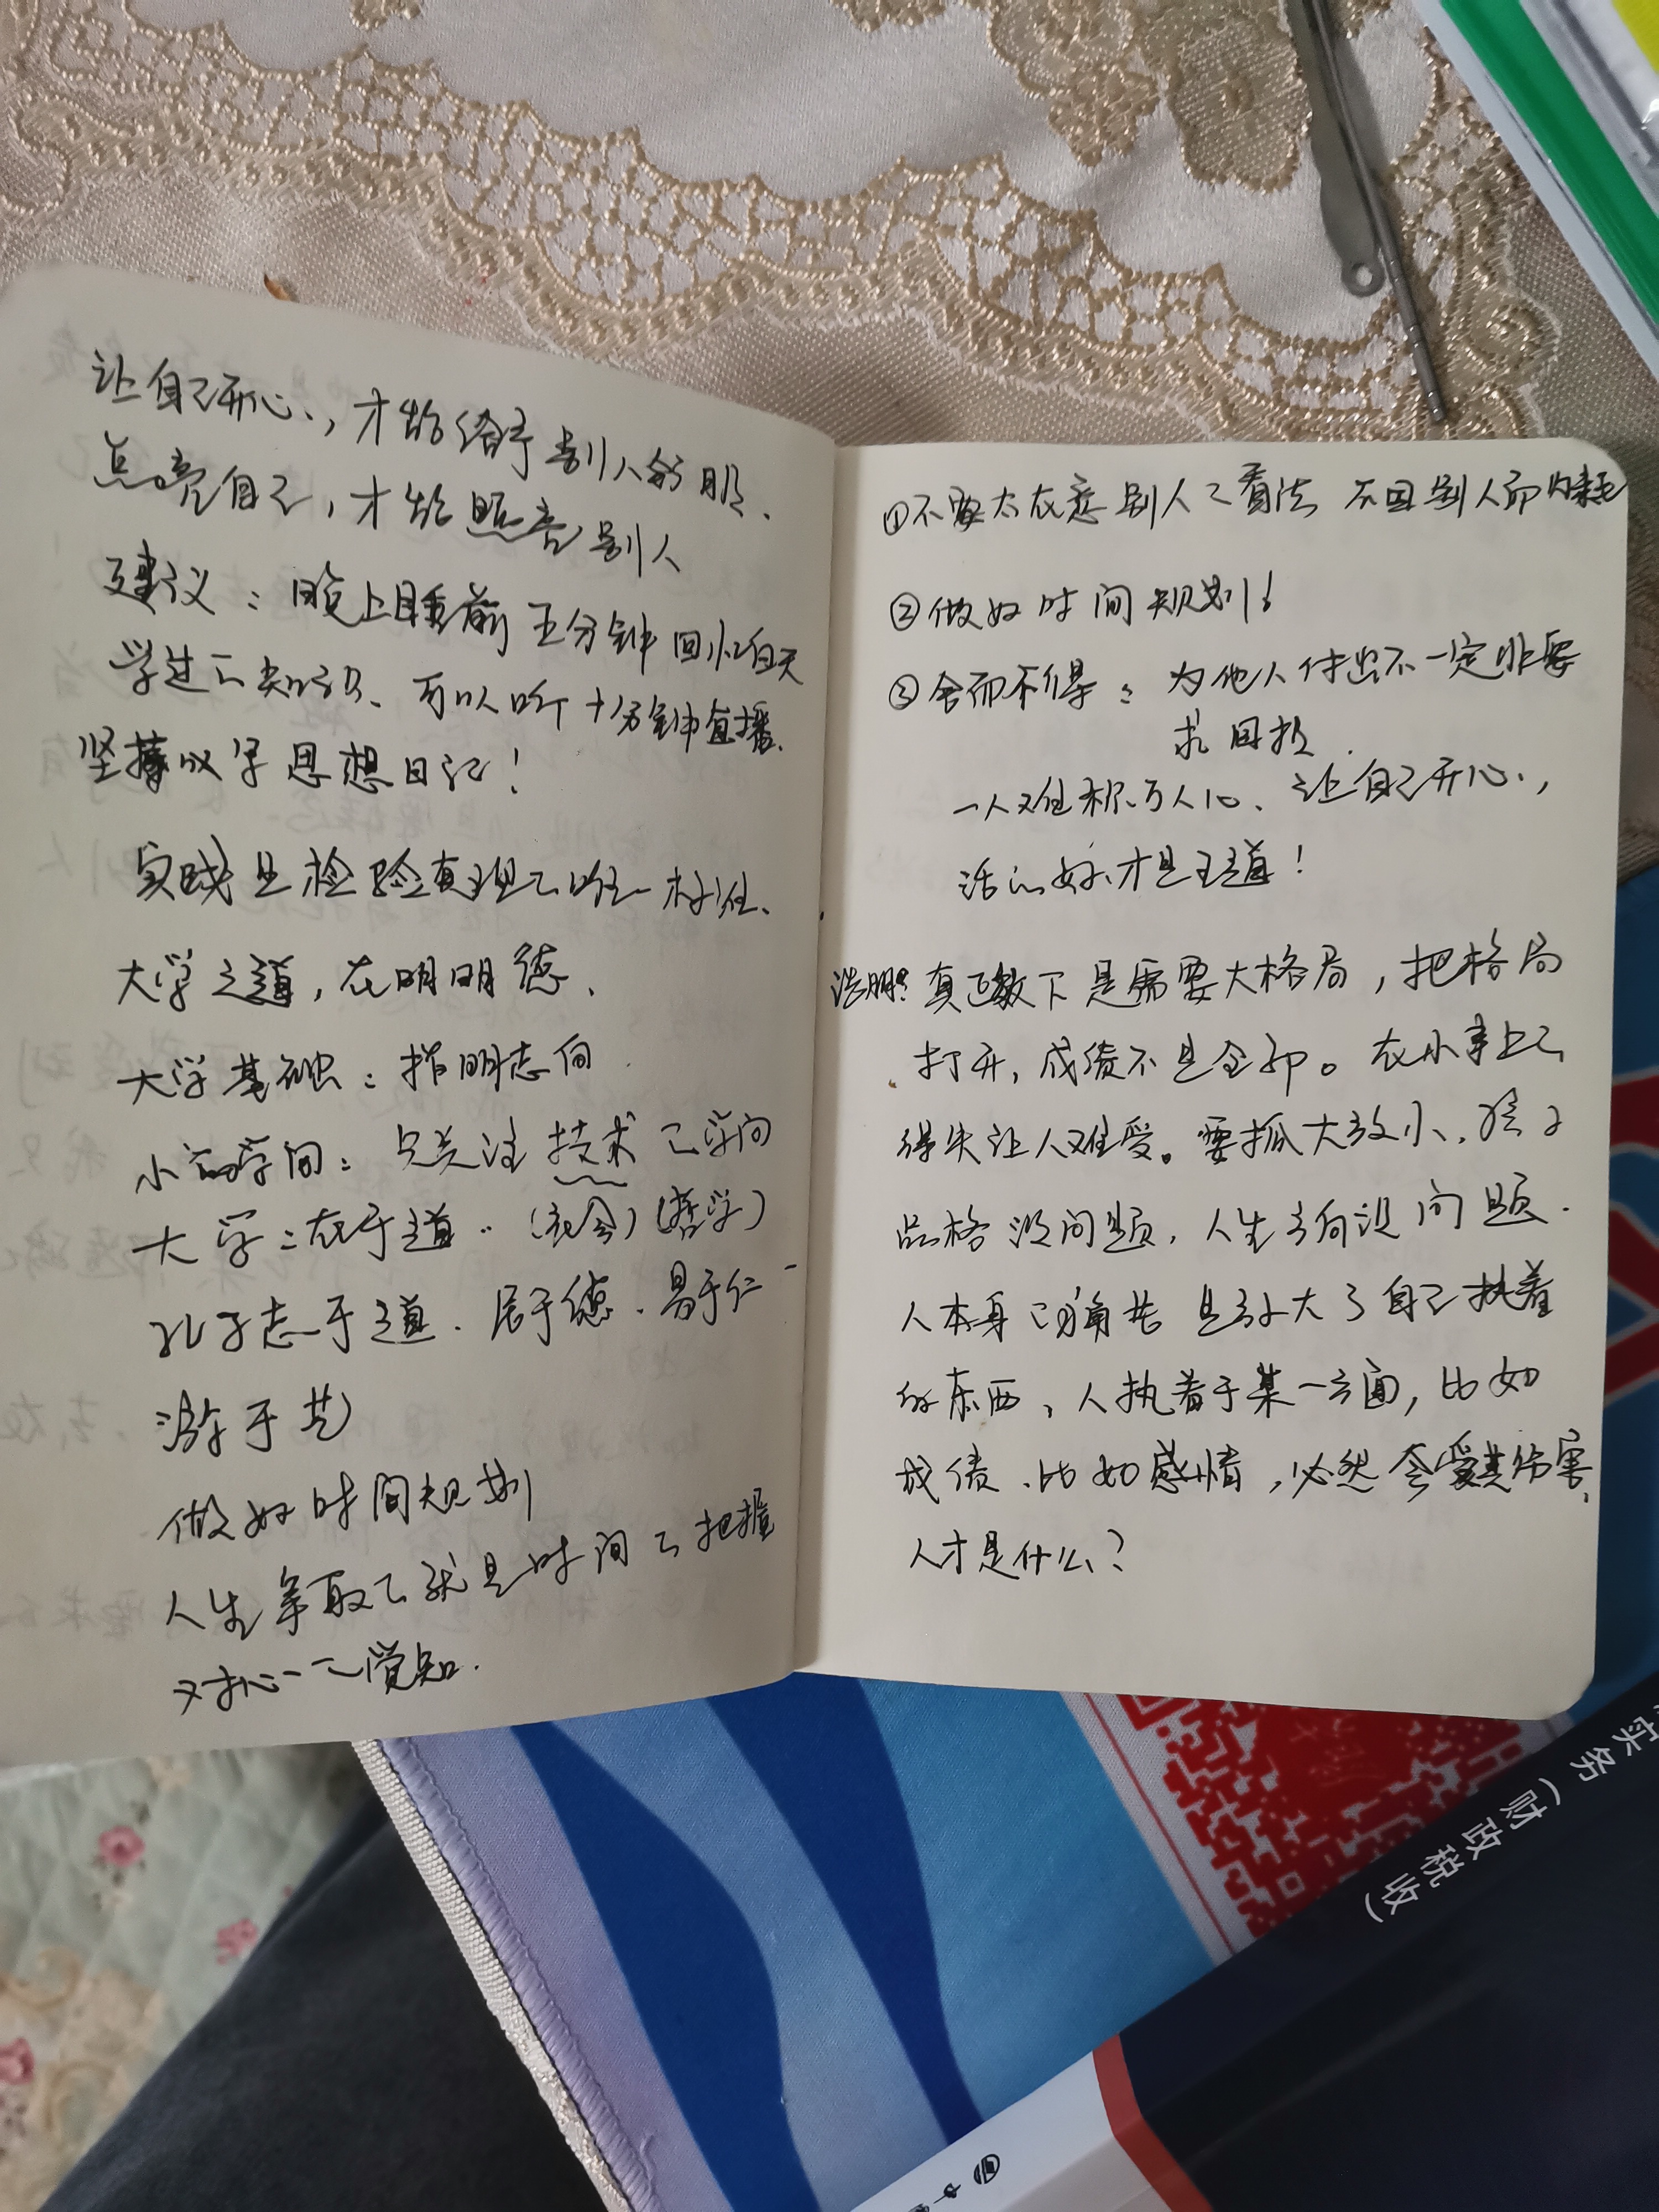 让自己开心，才能给予别人帮
点亮自己，才能照亮别人
建议：晚上睡前五分钟回忆白天
学过的知识、可以听十分钟直播.
坚持以写思想日记！
实践是检验真理的唯一标准、
大学之道，在明明德、
大学基础：指明志向
小学问：只关注技术的学问
大学：在于道..（社会）（哲学）
孔子志于道、居于德、易于仁
游于艺
做好时间规划
人生争取的就是时间的把握
对心一的觉知.
①不要太在意别人的看法 不因别人而内耗
②做好时间规划！
③舍而不得：为他人付出不一定非要
求回报.
一人难称万人心、让自己开心，
活的好才是王道！
浩明：真正教下是需要大格局，把格局
打开，成绩不是全部。在小事上的
得失让人难受。要抓大放小，孩子
品格没问题，人生方向没问题.
人本身的痛苦是放大了自己执着
的东西，人执着于某一方面，比如
成绩、比如感情，必然会受其伤害、
人才是什么？
实务（财政税收）
中